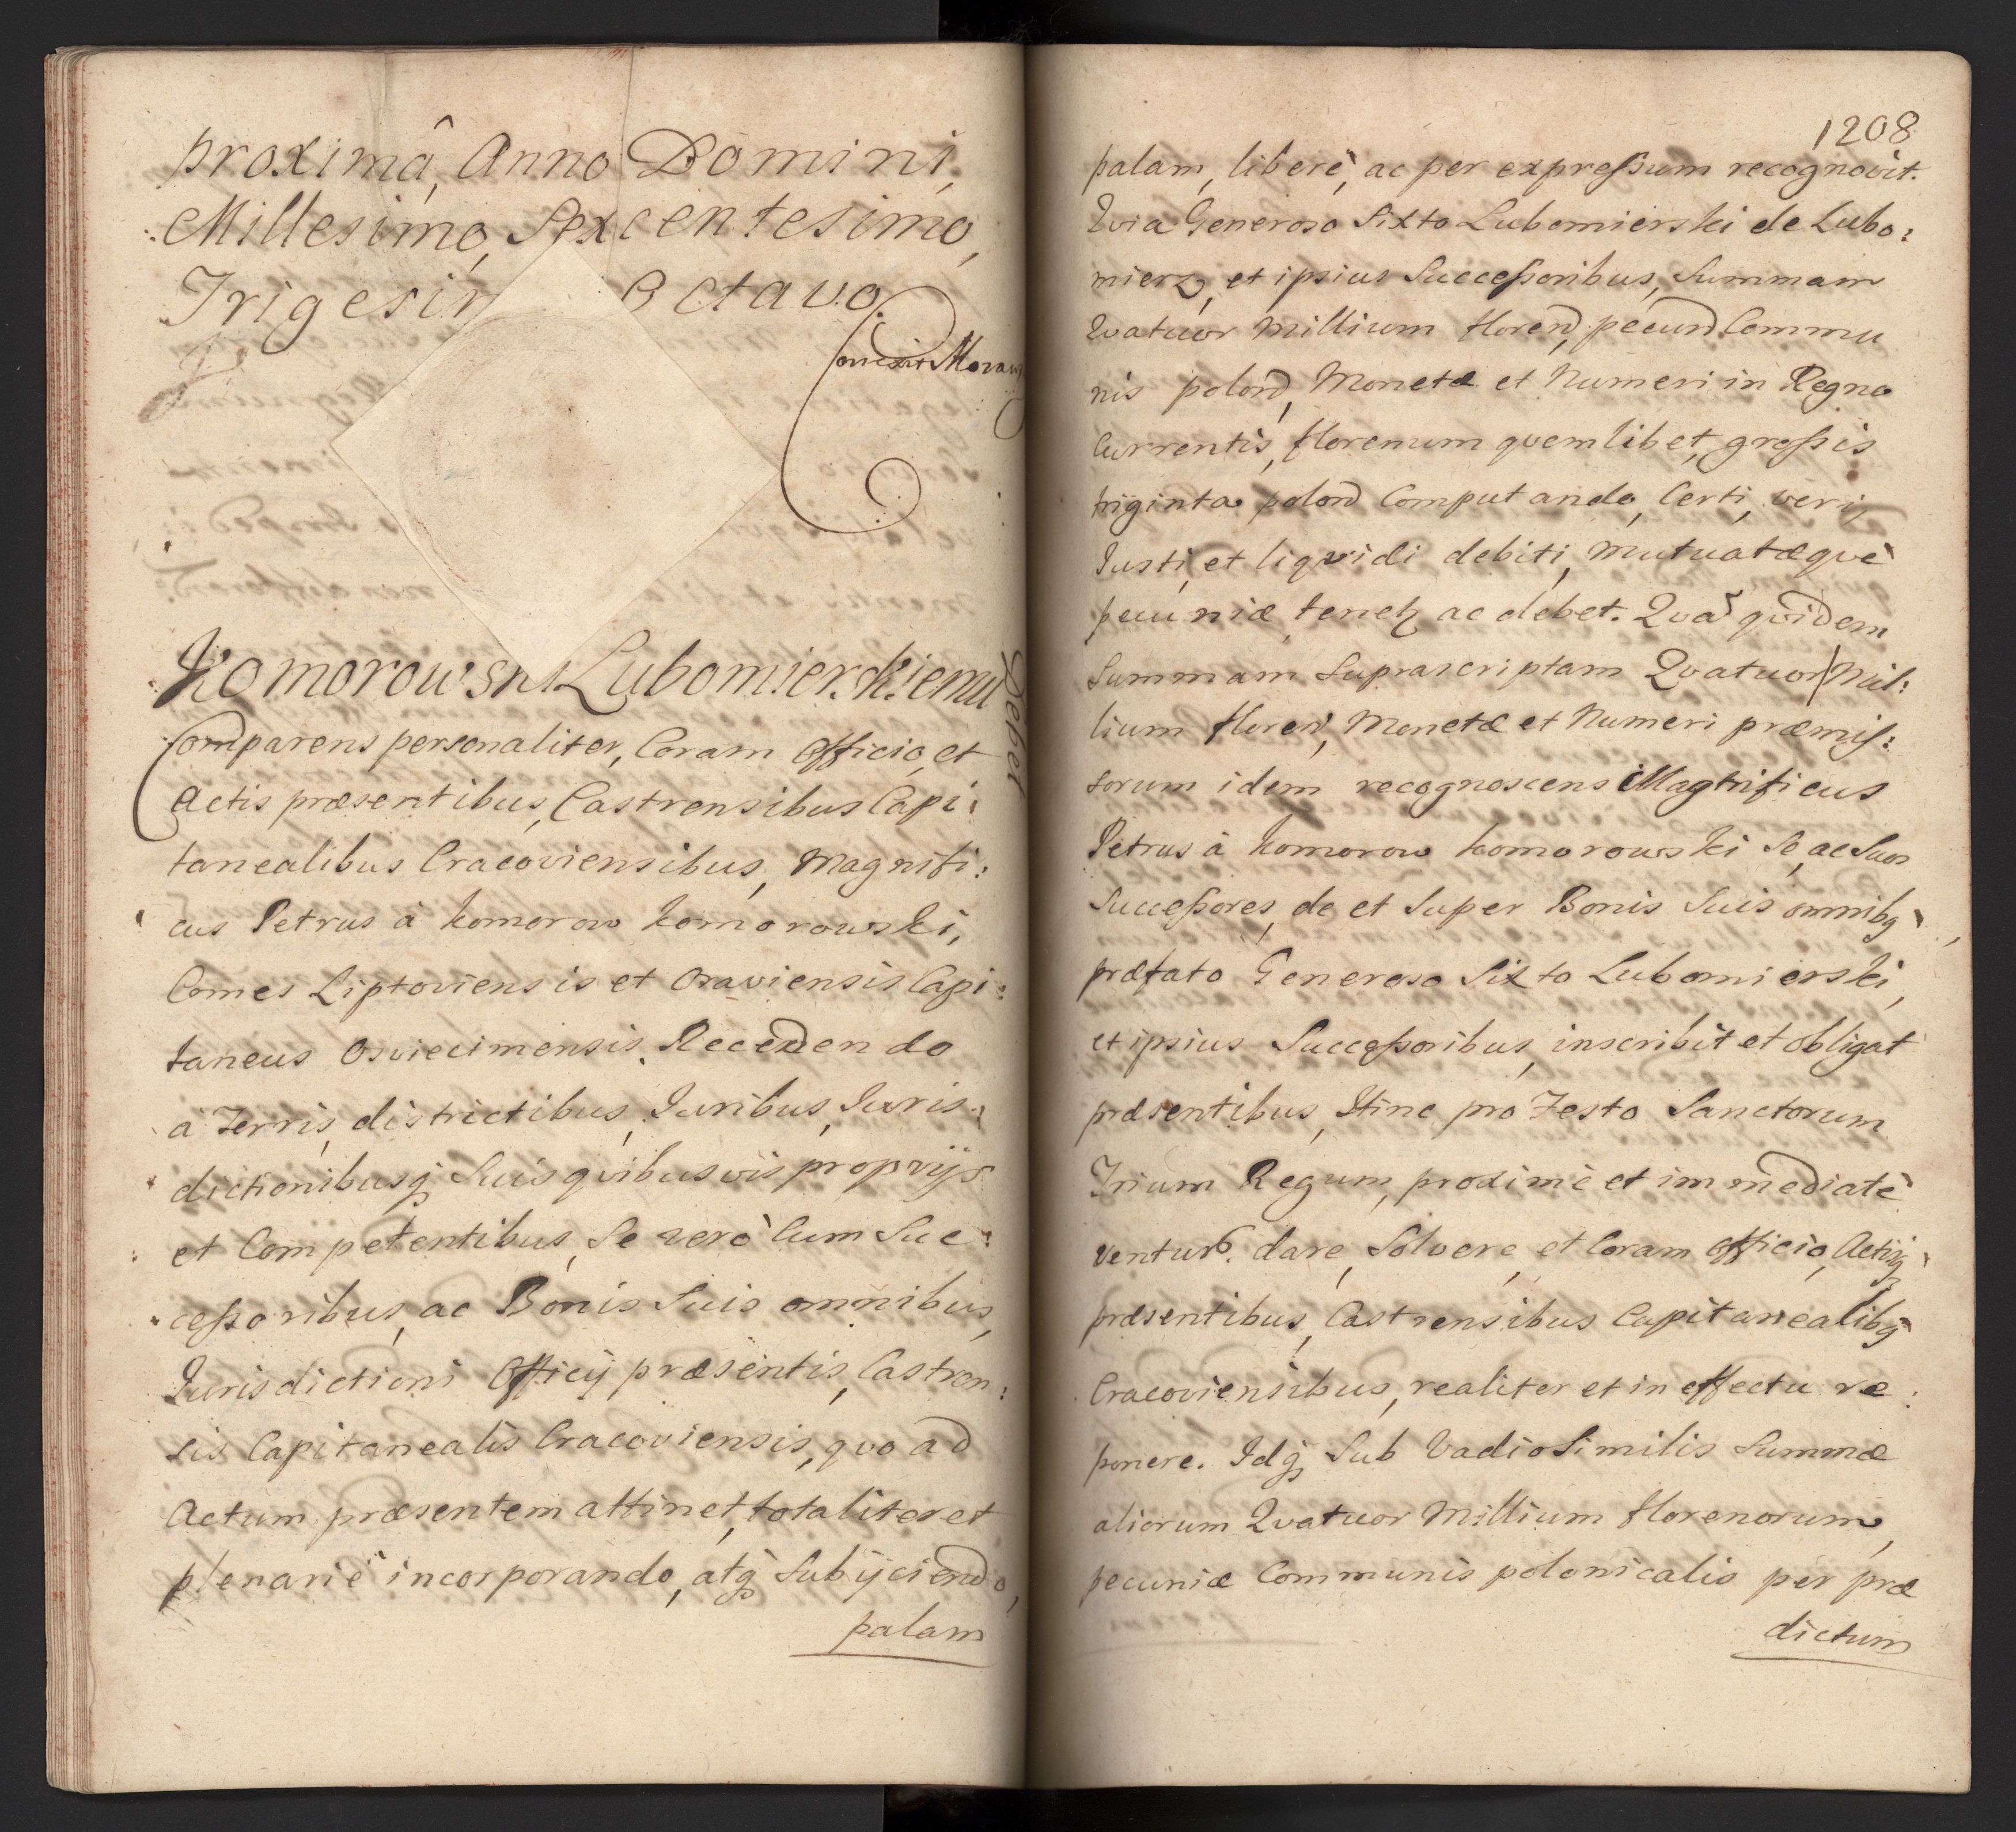 proximâ, Anno Domini,
Millesimo, Sexcentesimo,
Trigesi Octavo.
Conexit
Komorowski Lubomierskiemu
Debet
Comparens personaliter, Coram Officio, et
Actis præsentibus, Castrensibus Capi:
tanealibus Cracoviensibus, Magnifi:
cus Petrus à Komorow Komorowski,
Comes Liptoviensis et Oraviensis Capi:
taneus Osviecimensis. Recedendo
à Terris, districtibus, Iuribus, Iuris:
dictionibusq Suis quibusvis proprijs
et Competentibus, Se verò Cum Suc:
cessoribus, ac Bonis Suis omnibus,
Iurisdictioni Officij præsentis, Castren:
sis Capitanealis Cracoviensis, quo ad
Actum præsentem attinet, totaliter et
plenariè incorporando, atq Subijciendo,
palam
1208
palam, liberè, ac per expressum recognovit.
Qvia Generoso Sixto Lubomierski de Lubo:
mierz, et ipsius Successoribus, Summam
Qvatuor Millium floren, pecun Commu
nis polon, Monetæ et Numeri in Regno
Currentis, florenum quemlibet, grossis
triginta polon Computando, Certi, veri,
Iusti, et liqvidi debiti, Mutuatæquè
pecuniæ, tenet ac debet. Qvã qvidem
Summam Suprascriptam Qvatuor Mil:
lium floren, Monetæ et Numeri præmis:
sorum idem recognoscens Magnificus
Petrus à Komorow Komorowski Se, ac Suos
Successores, de et Super Bonis Suis omnibq
præfato Generoso Sixto Lubomierski,
et ipsius Successoribus, inscribit et obligat
præsentibus, Hinc pro Festo Sanctorum
Trium Regum, proximè et immediatè
ventur. dare, Solvere, et Coram Officio, Actisq
præsentibus, Castrensibus Capitanealibq
Cracoviensibus, realiter et in effectu re:
ponere. Idq Sub Vadio Similis Summæ
aliorum Qvatuor Millium florenorum,
pecuniæ Communis polonicalis per præ
dictum